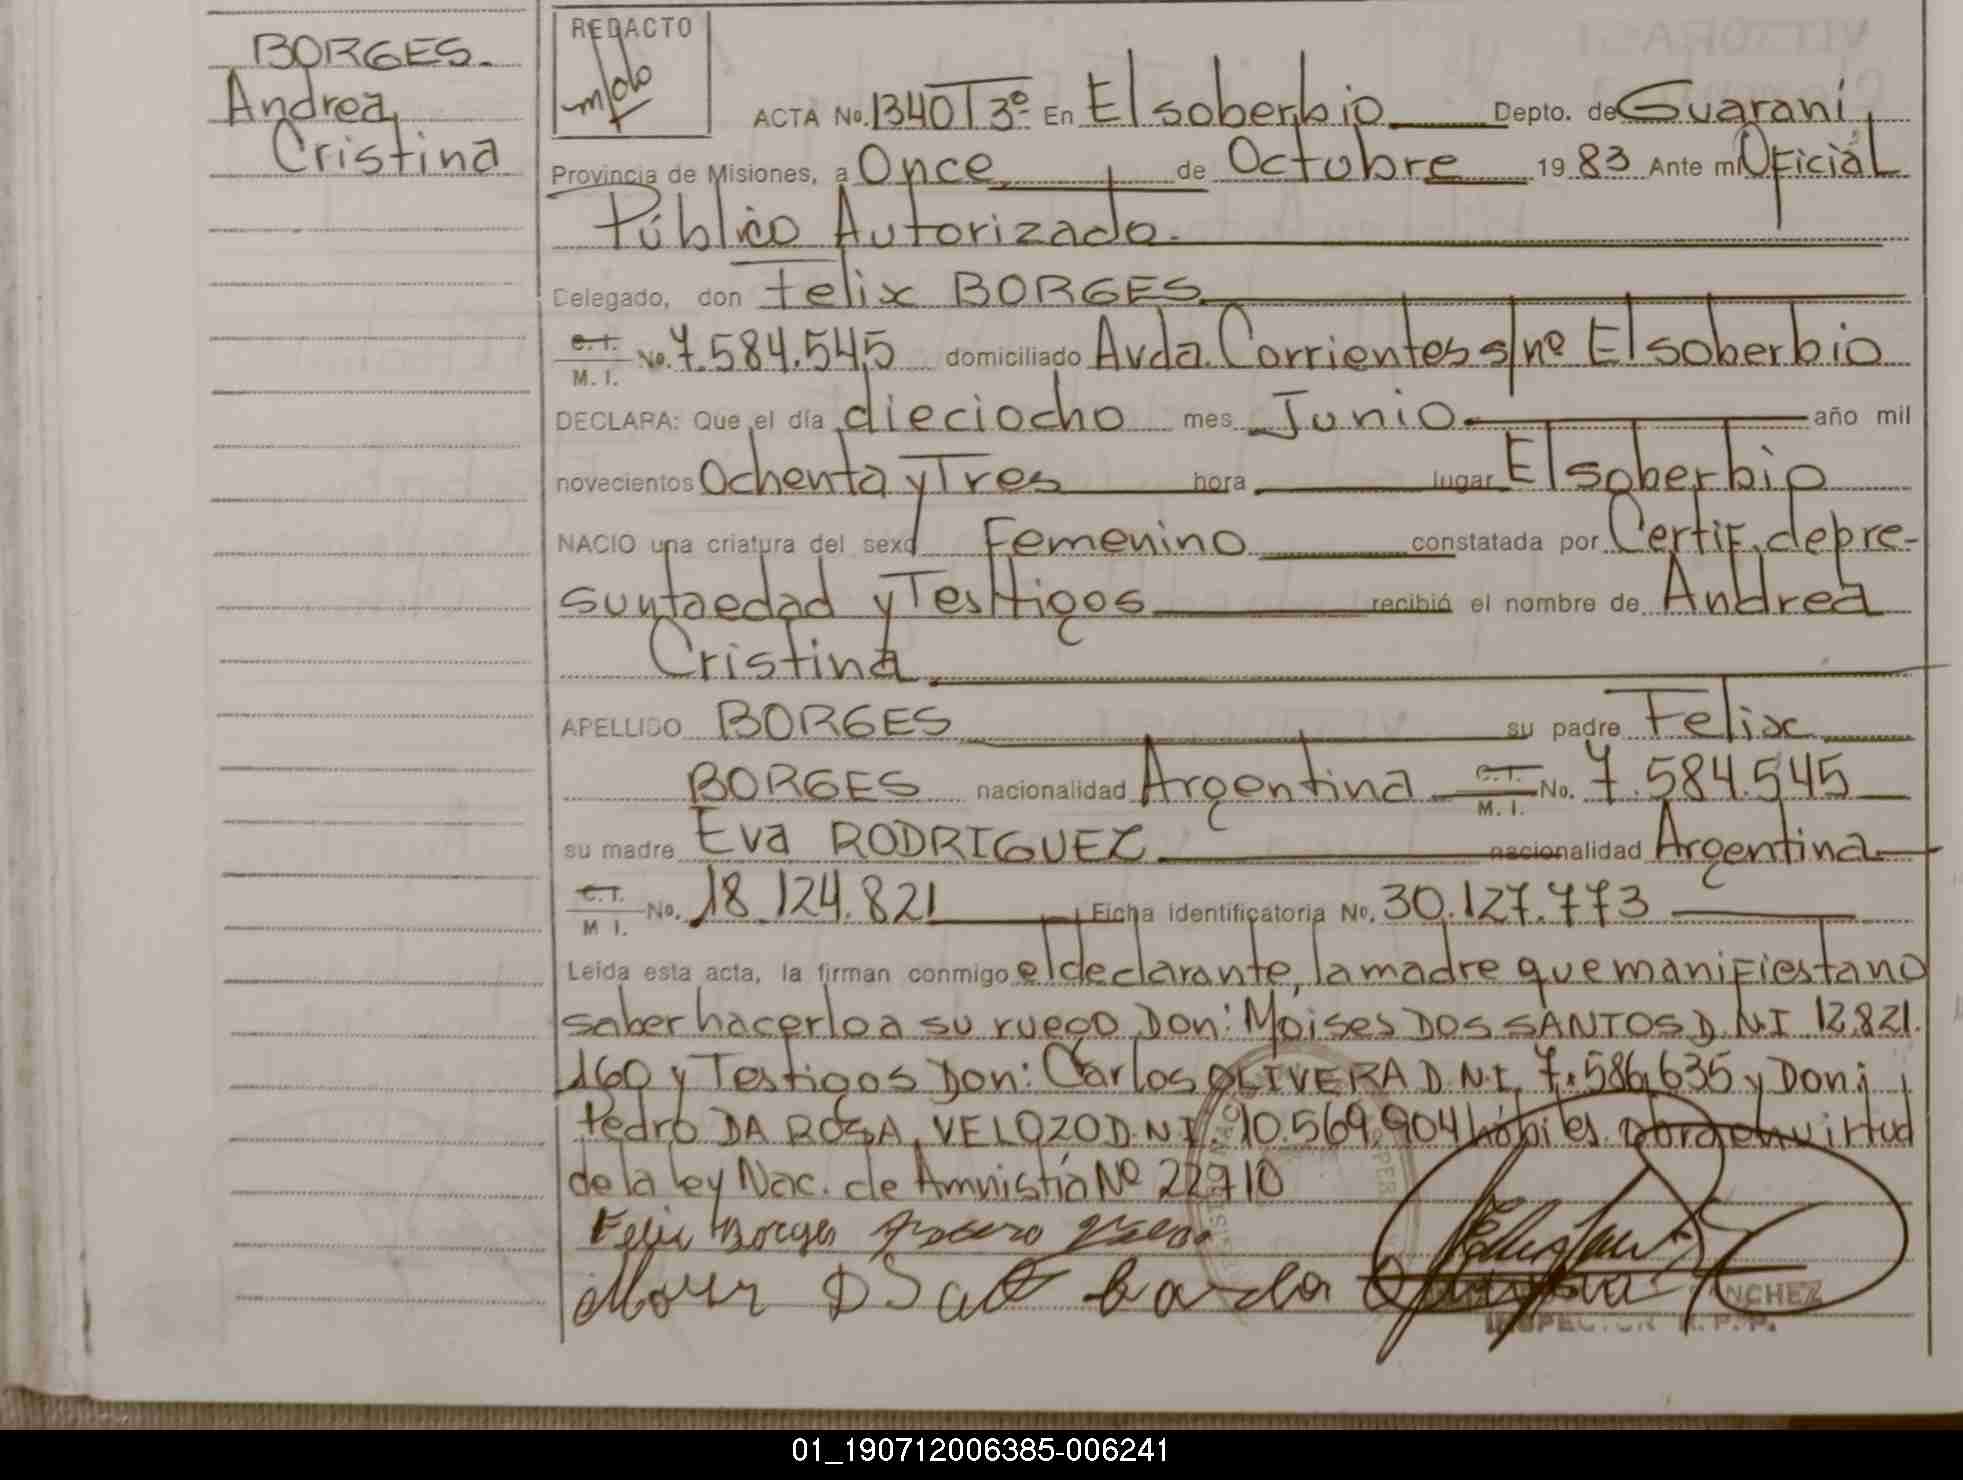 BORGES.
Andrea
Cristina
REDACTO
ACTA No. 1340 T 3º En El soberbio Depto. de Guarani
Provincia de Misiones, a Once de Octubre 1983 Ante mi Oficial
Público Autorizado.
Delegado, don Felix BORGES
C.I. M.I. No. 7.584.545 domiciliado Avda. Corrientes s/nº El soberbio
DECLARA: Que el día dieciocho mes Junio año mil
novecientos Ochenta y Tres hora lugar El soberbio
NACIO una criatura del sexo Femenino constatada por Certif. de pre-
sunta edad y Testigos recibió el nombre de Andrea
Cristina
APELLIDO BORGES su padre Felix
BORGES nacionalidad Argentina C.I. M.I. No. 7.584.545
su madre Eva RODRIGUEZ nacionalidad Argentina
C.I. M I. No. 18.124.821 Ficha identificatoria No. 30.127.773
Leída esta acta, la firman conmigo el declarante, la madre que manifiesta no
saber hacerlo a su ruego Don: Moises DOS SANTOS D.N.I 12.821.
160 y Testigos Don: Carlos OLIVERA D.N.I. 7.586.635 y Don:
Pedro DA ROSA VELOZO D.N.I. 10.569.904 hábiles obra en virtud
de la ley Nac. de Amnistía Nº 22710
Felix Borges
NCHEZ
INSPECTOR R.P.P.
01_190712006385-006241